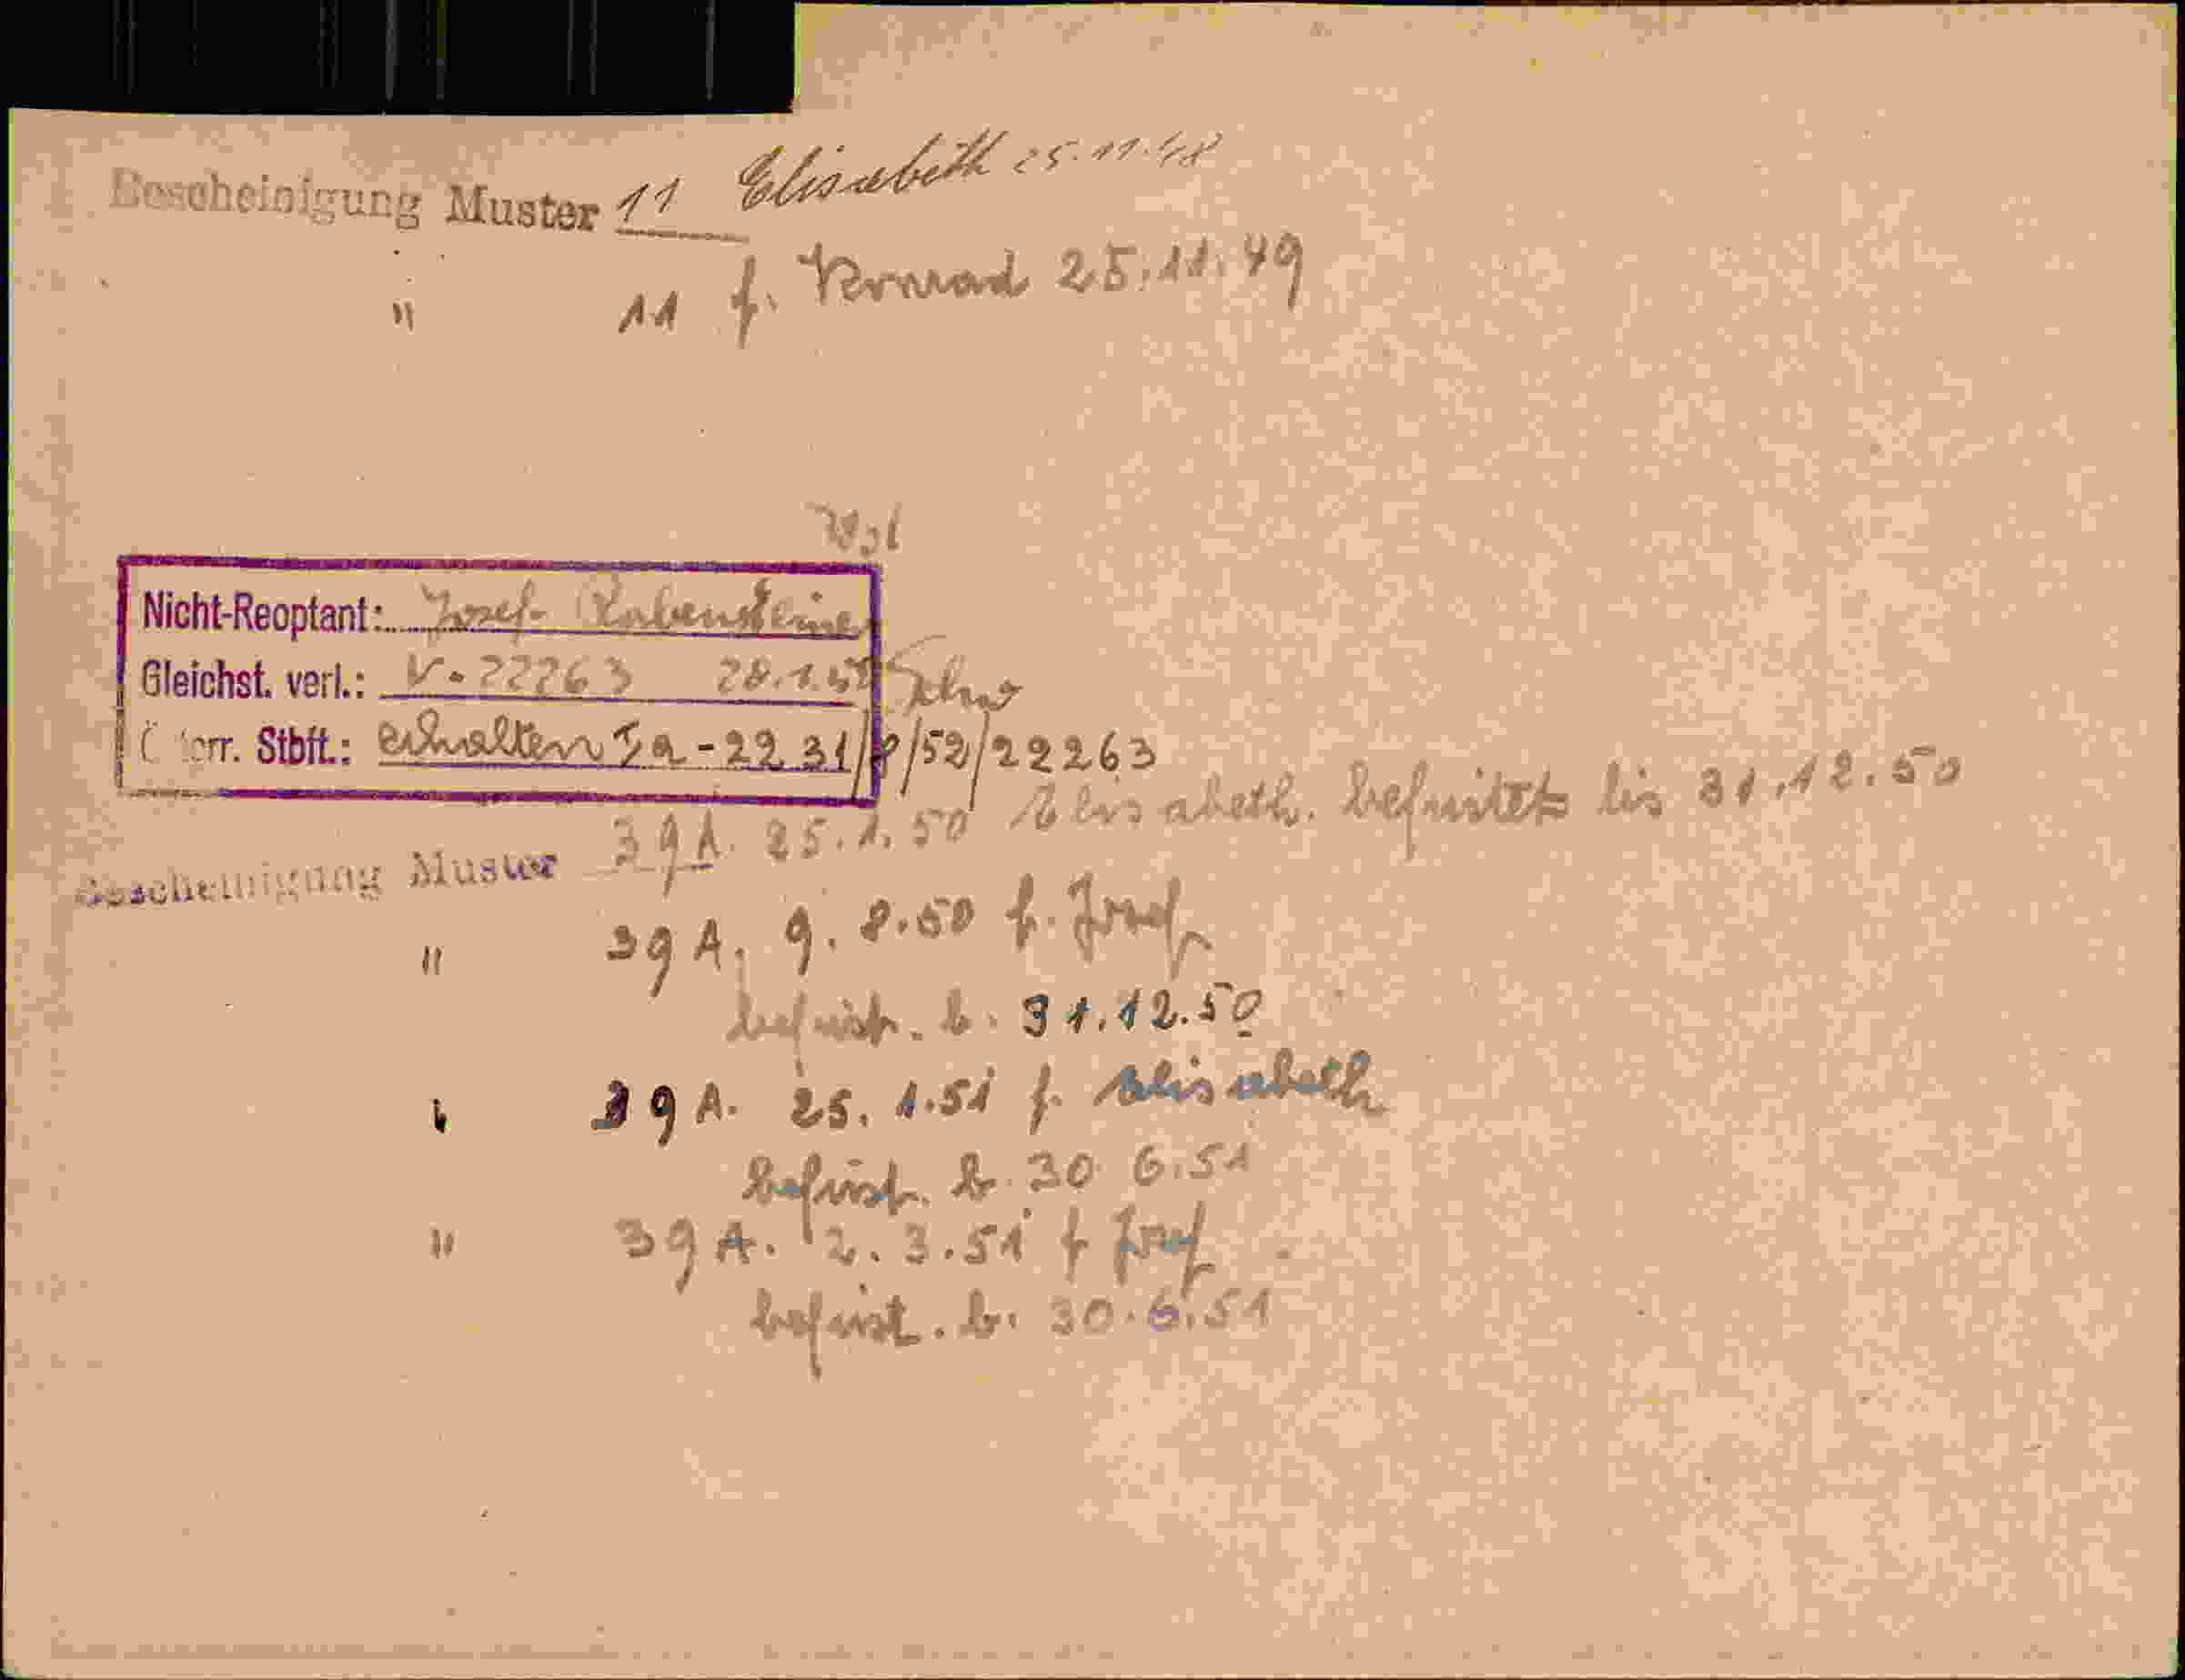 Bescheinigung Muster 11 Elisabeth 25.11.48
" 11 f. Konrad 25.11.49
Nicht-Reoptant: Josef Rabensteiner
Gleichst. verl.: V-22263 28.1.
Österr. Stbft.: erhalten Ia-2231/8/52/22263
Bescheinigung Muster 39A. 25.1.50 Elisabeth. befristet bis 31.12.50
" 39A. 9.8.50 f. Josef
befrist. b. 31.12.50
" 39A. 25.1.51 f. Elisabeth
befrist. b. 30 6.51
" 39A. 2.3.51 f Josef
befrist. b. 30.6.51